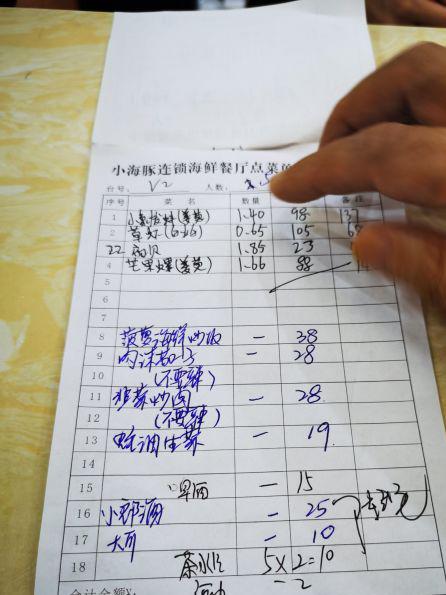 小海豚连锁海鲜餐厅点菜单
台号: V2 人数: 5
序号 菜 名 数量 备注
1 (姜葱) 1.40 98 137
2 草虾(白灼) 0.65 105 68
3 扇贝 1.85 23
4 芒果螺(姜葱) 1.66 88
5
6
7
8 菠萝海鲜炒饭 一 38
9 肉沫茄子 一 28
10 (不要辣)
11 韭菜炒肉 一 28
12 (不要辣)
13 蚝油生菜 一 19
14
15 啤酒 一 15
16 小郎酒 一 25
17 大可 一 10
18 茶水位 5×2=10
合计金额¥: 一 2